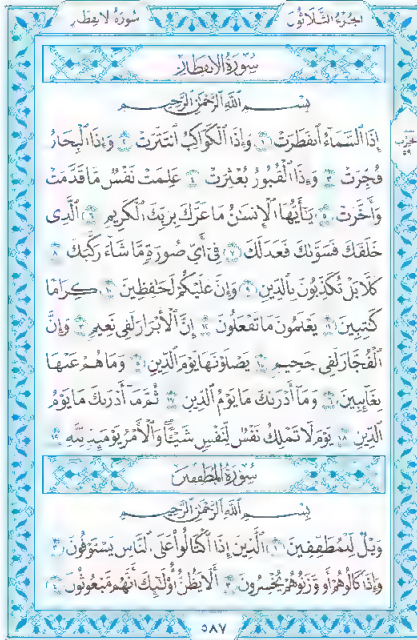 سورة الانفطار الجزء الثلاثون
سُورَةُ الانفِطَار
بِسْمِ اللَّهِ الرَّحْمَٰنِ الرَّحِيمِ
إِذَا ٱلسَّمَآءُ ٱنفَطَرَتْ ١ وَإِذَا ٱلْكَوَاكِبُ ٱنتَثَرَتْ ٢ وَإِذَا ٱلْبِحَارُ
فُجِّرَتْ ٣ وَإِذَا ٱلْقُبُورُ بُعْثِرَتْ ٤ عَلِمَتْ نَفْسٌ مَّا قَدَّمَتْ
وَأَخَّرَتْ ٥ يَٰٓأَيُّهَا ٱلْإِنسَٰنُ مَا غَرَّكَ بِرَبِّكَ ٱلْكَرِيمِ ٦ ٱلَّذِى
خَلَقَكَ فَسَوَّىٰكَ فَعَدَلَكَ ٧ فِىٓ أَىِّ صُورَةٍ مَّا شَآءَ رَكَّبَكَ ٨
كَلَّا بَلْ تُكَذِّبُونَ بِٱلدِّينِ ٩ وَإِنَّ عَلَيْكُمْ لَحَٰفِظِينَ ١٠ كِرَامًا
كَٰتِبِينَ ١١ يَعْلَمُونَ مَا تَفْعَلُونَ ١٢ إِنَّ ٱلْأَبْرَارَ لَفِى نَعِيمٍ ١٣ وَإِنَّ
ٱلْفُجَّارَ لَفِى جَحِيمٍ ١٤ يَصْلَوْنَهَا يَوْمَ ٱلدِّينِ ١٥ وَمَا هُمْ عَنْهَا
بِغَآئِبِينَ ١٦ وَمَآ أَدْرَىٰكَ مَا يَوْمُ ٱلدِّينِ ١٧ ثُمَّ مَآ أَدْرَىٰكَ مَا يَوْمُ
ٱلدِّينِ ١٨ يَوْمَ لَا تَمْلِكُ نَفْسٌ لِّنَفْسٍ شَيْـًٔا وَٱلْأَمْرُ يَوْمَئِذٍ لِّلَّهِ ١٩
سُورَةُ المطفّفين
بِسْمِ اللَّهِ الرَّحْمَٰنِ الرَّحِيمِ
وَيْلٌ لِّلْمُطَفِّفِينَ ١ ٱلَّذِينَ إِذَا ٱكْتَالُوا۟ عَلَى ٱلنَّاسِ يَسْتَوْفُونَ ٢
وَإِذَا كَالُوهُمْ أَو وَّزَنُوهُمْ يُخْسِرُونَ ٣ أَلَا يَظُنُّ أُو۟لَٰٓئِكَ أَنَّهُم مَّبْعُوثُونَ ٤
٥٨٧